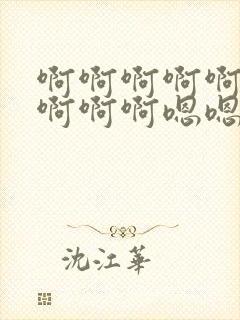 啊啊啊啊啊
啊啊啊嗯嗯
沈江華